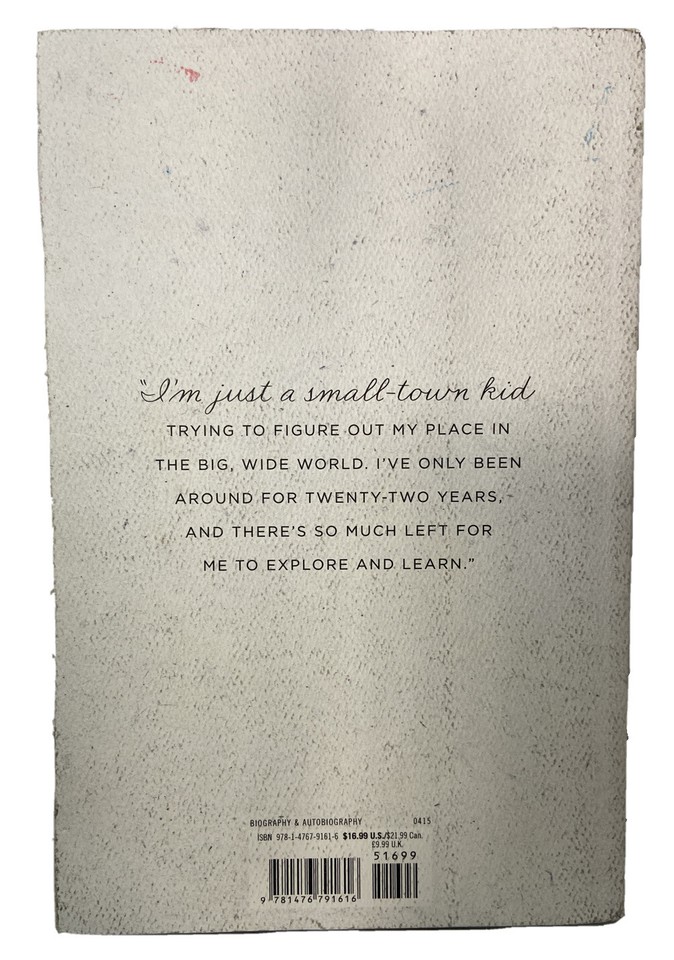 "I'm just a small-town kid
TRYING TO FIGURE OUT MY PLACE IN
THE BIG, WIDE WORLD. I'VE ONLY BEEN
AROUND FOR TWENTY-TWO YEARS,
AND THERE'S SO MUCH LEFT FOR
ME TO EXPLORE AND LEARN."
BIOGRAPHY & AUTOBIOGRAPHY 0415
ISBN 978-1-4767-9161-6 $16.99 U.S./$21.99 Can.
£9.99 U.K.
51699
9 781476 791616